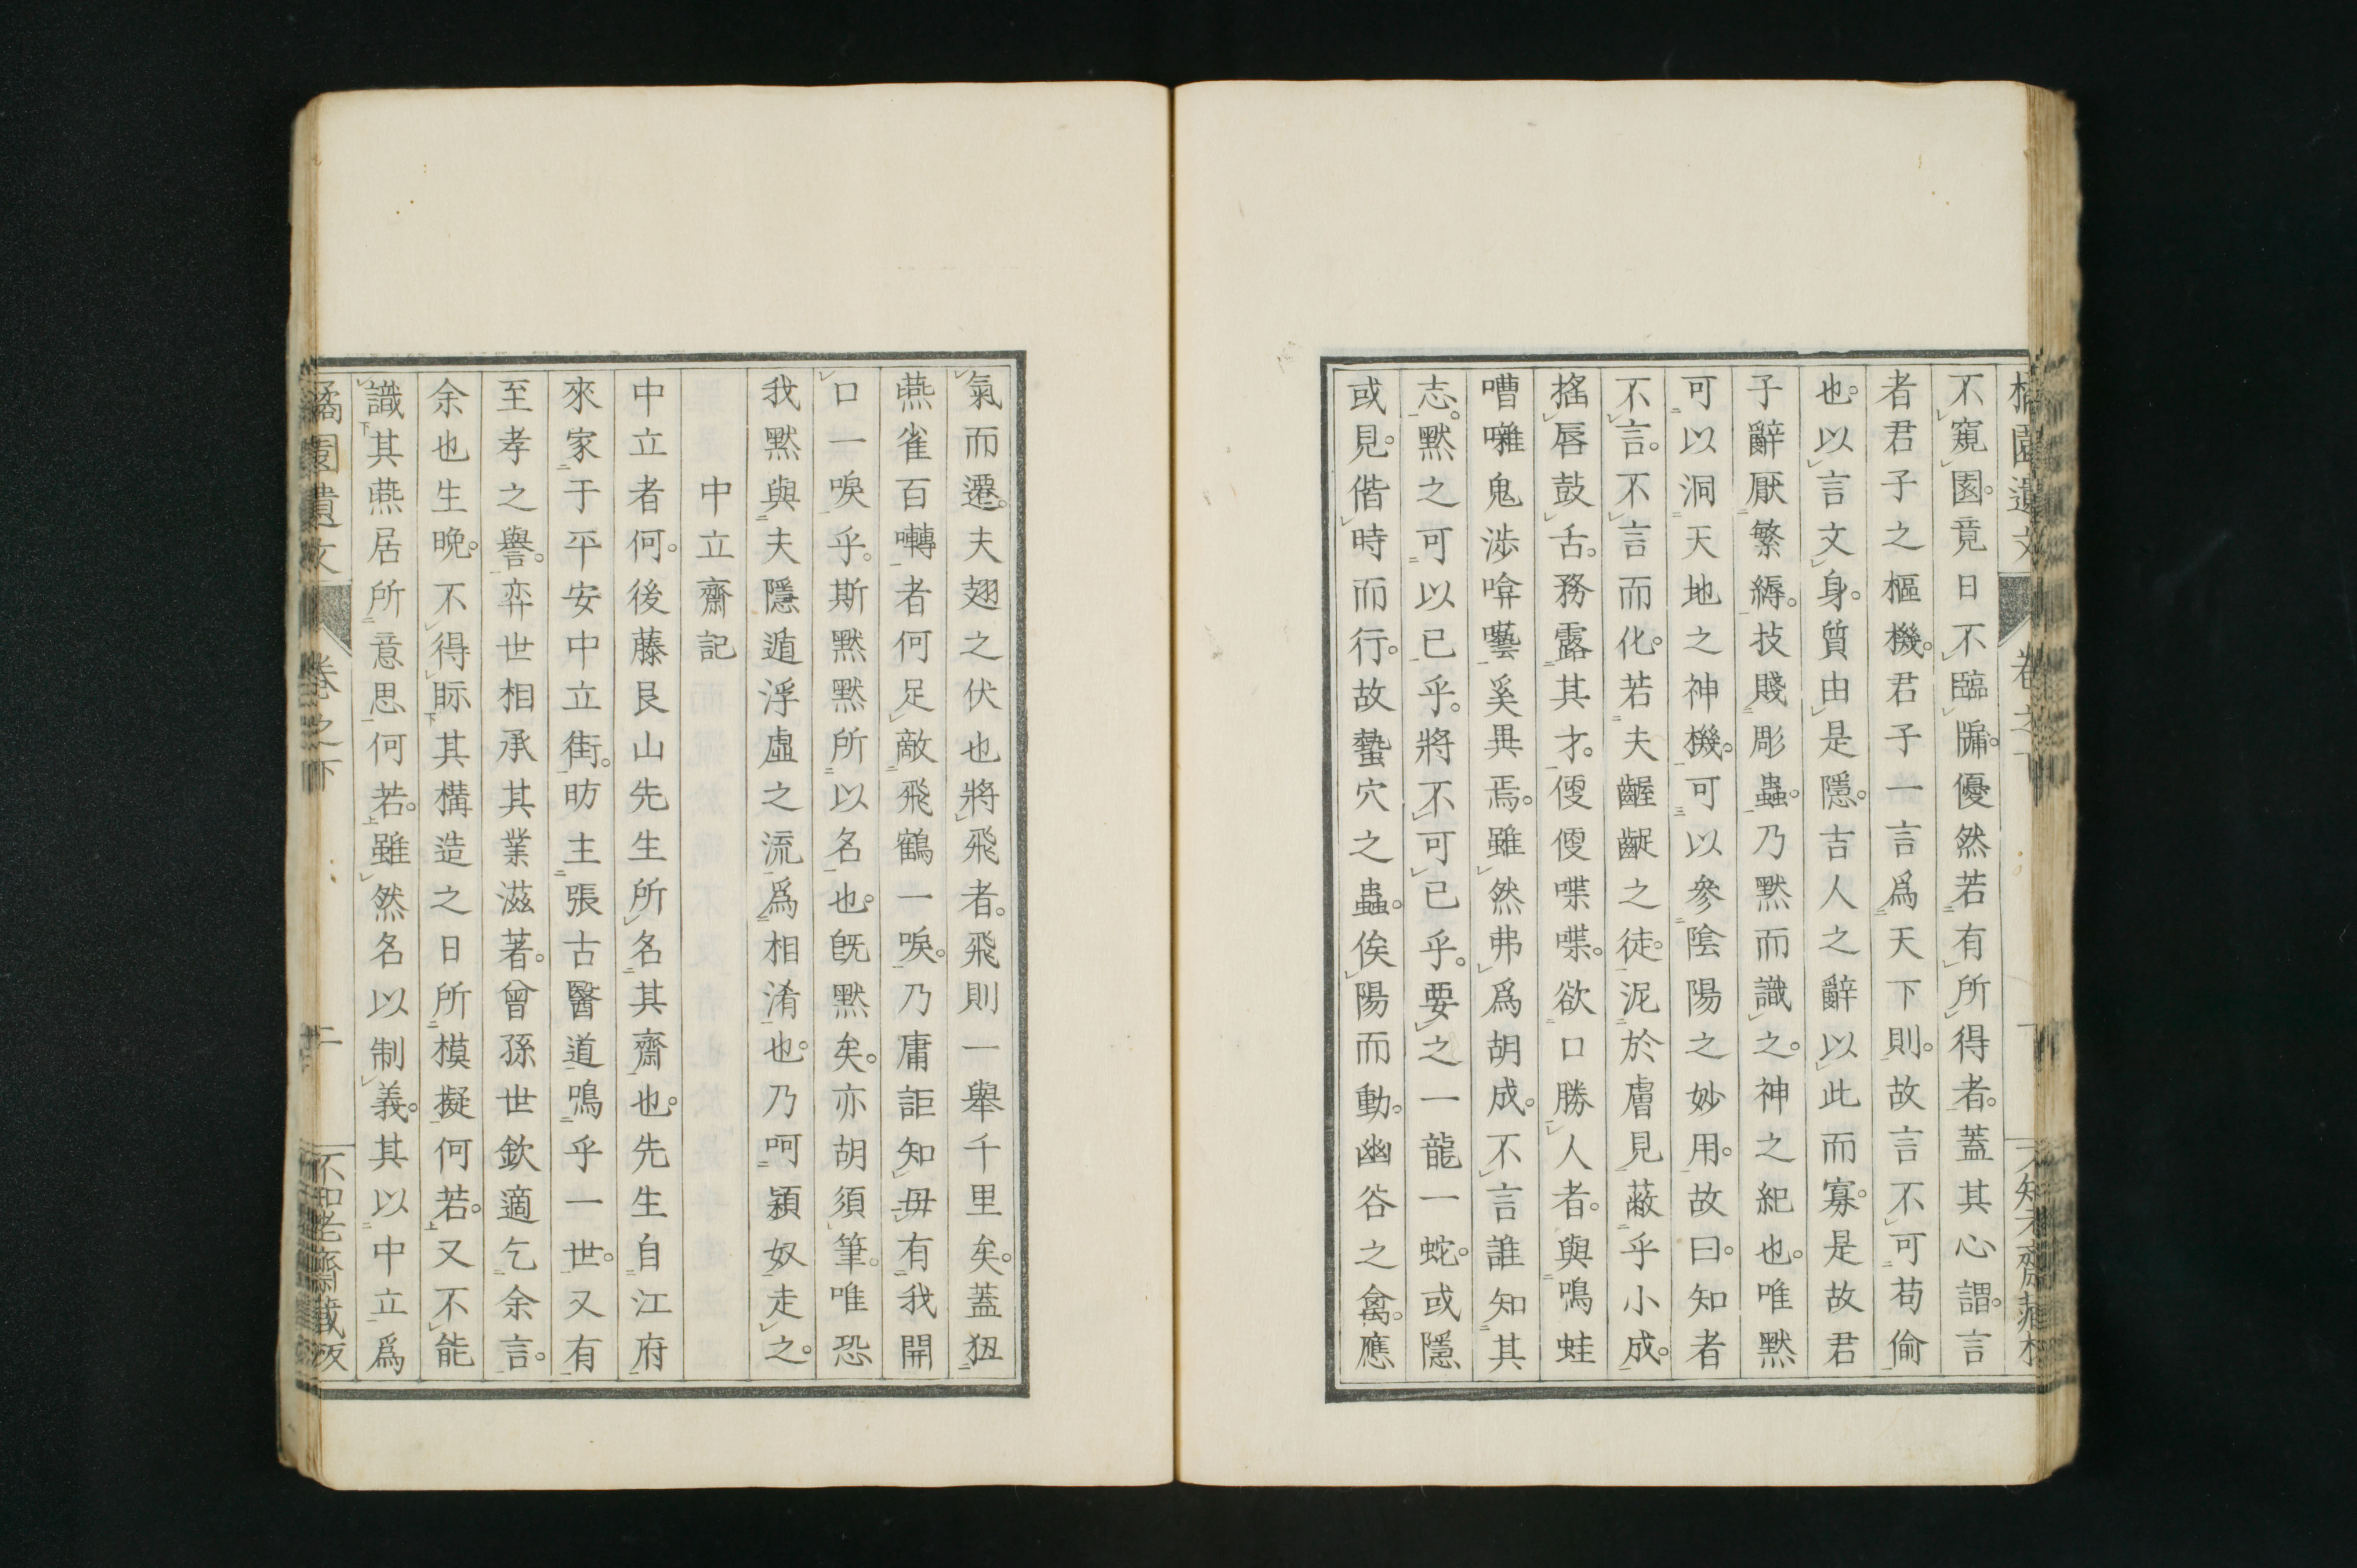 橘園遺文 卷之下
不窺園。竟日不臨牖。優然若有所得者。蓋其心謂。言
者君子之樞機。君子一言爲天下則。故言不可苟偷
也。以言文身。質由是隱。吉人之辭以此而寡。是故君
子辭厭繁縟。技賤彫蟲。乃默而識之。神之紀也。唯默
可以洞天地之神機。可以參陰陽之妙用。故曰。知者
不言。不言而化。若夫齷齪之徒。泥於膚見蔽乎小成。
搖唇鼓舌。務露其才。便便喋喋。欲口勝人者。與鳴蛙
嘈囃鬼渉喭囈奚異焉。雖然弗爲胡成。不言誰知其
志。默之可以已乎。將不可已乎。要之一龍一蛇。或隱
或見。偕時而行。故蟄穴之蟲。俟陽而動。幽谷之禽。應
氣而遷。夫翅之伏也將飛者。飛則一舉千里矣。蓋狃
燕雀百囀者何足敵飛鶴一唳。乃庸詎知毋有我開
口一唳乎。斯默默所以名也。旣默矣。亦胡須筆。唯恐
我默與夫隱遁浮虛之流爲相淆也。乃呵潁奴走之。
中立齋記
中立者何。後藤艮山先生所名其齋也。先生自江府
來家于平安中立街。昉主張古醫道鳴乎一世。又有
至孝之譽。弈世相承其業滋著。曾孫世欽適乞余言。
余也生晚。不得眎其構造之日所模擬何若。又不能
識其燕居所意思何若。雖然名以制義。其以中立爲
橘園遺文 卷之下 不知老齋藏板